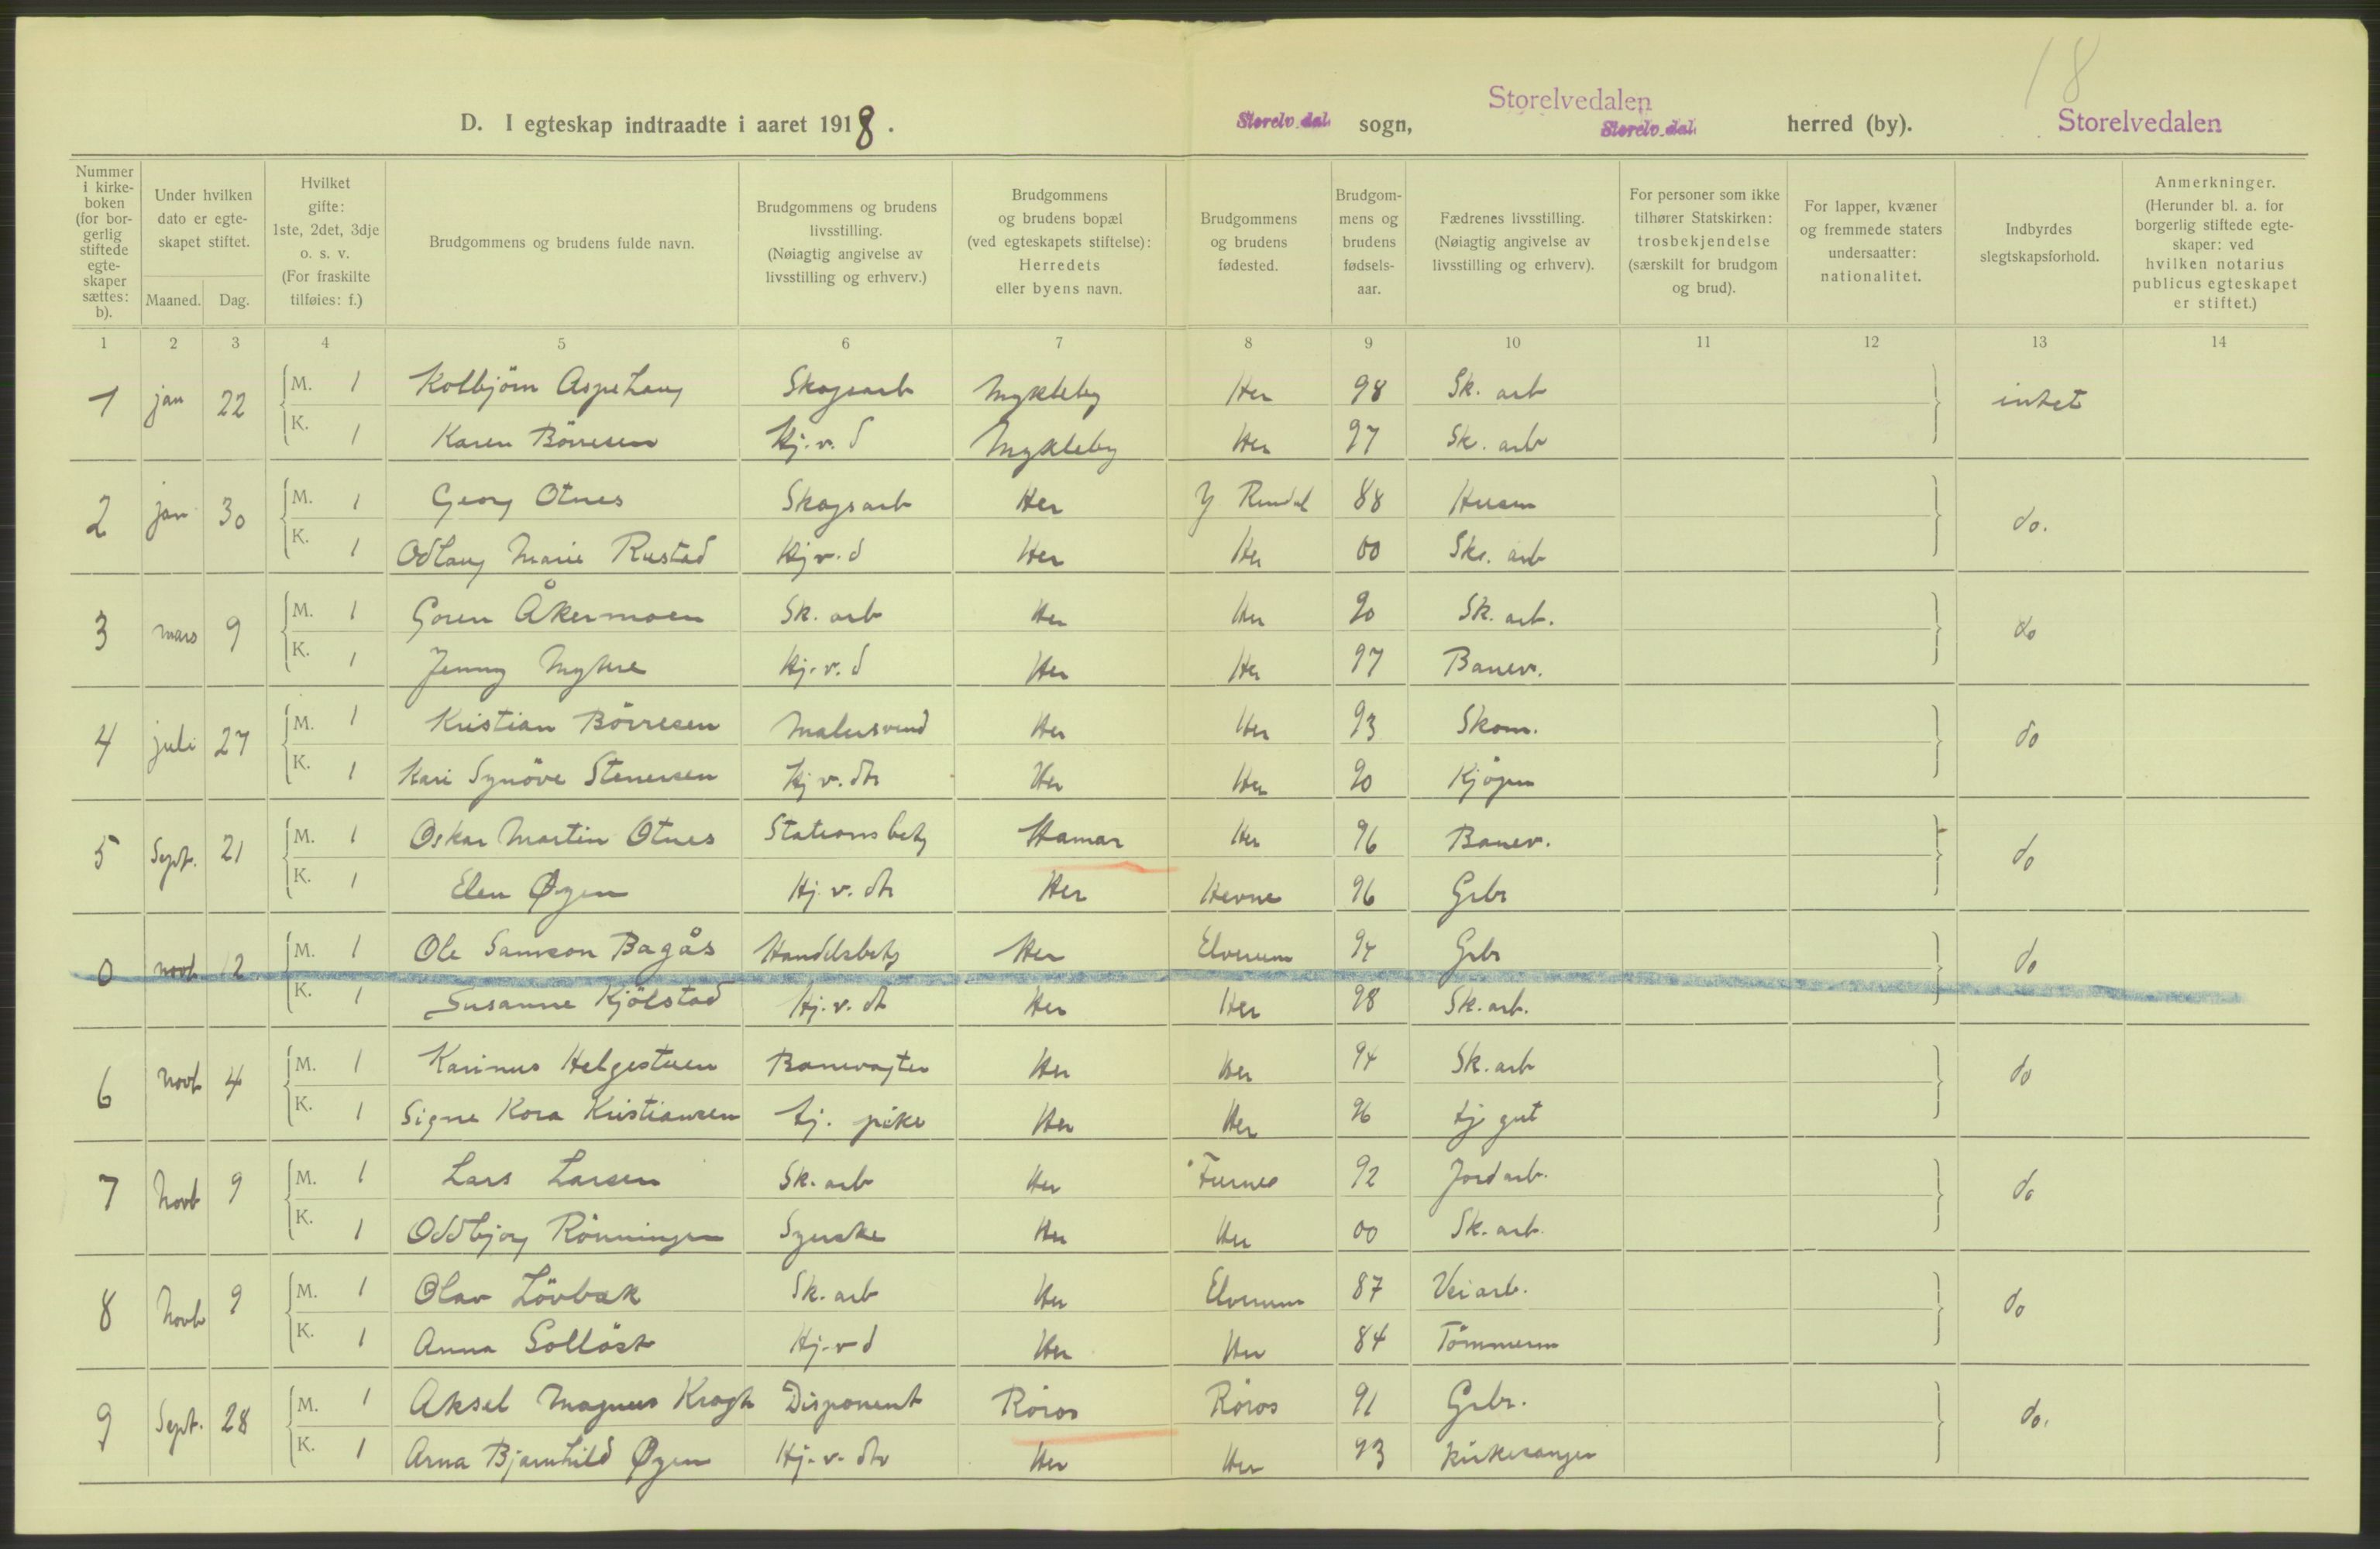 18
D. I egteskap indtraadte i aaret 1918. Storelv.dal. sogn, Storelvedalen Storelv.dal. herred (by). Storelvedalen
Nummer i kirkeboken (for borgerlig stiftede egteskaper sættes: b).
Under hvilken dato er egteskapet stiftet.
Maaned. Dag.
Hvilket gifte: 1ste, 2det, 3dje o. s. v. (For fraskilte tilføies: f.)
Brudgommens og brudens fulde navn.
Brudgommens og brudens livsstilling. (Nøiagtig angivelse av livsstilling og erhverv.)
Brudgommens og brudens bopæl (ved egteskapets stiftelse): Herredets eller byens navn.
Brudgommens og brudens fødested.
Brudgommens og brudens fødselsaar.
Fædrenes livsstilling. (Nøiagtig angivelse av livsstilling og erhverv).
For personer som ikke tilhører Statskirken: trosbekjendelse (særskilt for brudgom og brud).
For lapper, kvæner og fremmede staters undersaatter: nationalitet.
Indbyrdes slegtskapsforhold.
Anmerkninger. (Herunder bl. a. for borgerlig stiftede egteskaper: ved hvilken notarius publicus egteskapet er stiftet.)
1 2 3 4 5 6 7 8 9 10 11 12 13 14
1 jan 22 M. 1 Kolbjörn Aspehaug Skogsarb Mykleby Her 98 Sk. arb intet
K. 1 Karen Börresen Hj. v. d Mykleby Her 97 Sk. arb
2 jan 30 M. 1 Georg Otnes Skogsarb Her Y Rendal 88 Husm do.
K. 1 Odlaug Marie Rustad Hj v. d Her Her 00 Sk. arb
3 mars 9 M. 1 Goren Åkermoen Sk. arb Her Her 90 Sk. arb. do
K. 1 Jenny Myhre Hj. v. d Her Her 97 Banev.
4 juli 27 M. 1 Kristian Börresen Malersvend Her Her 93 Skom. do
K. 1 Kari Synöve Stenersen Hj v. dtr Her Her 90 Kjöpm
5 Sept. 21 M. 1 Oskar Martin Otnes Stationsbetj Hamar Her 96 Banev. do
K. 1 Elen Øyen Hj. v. dtr Her Hevne 96 Grbr
0 novb 12 M. 1 Ole Samson Bagås Handelsbetj Her Elverum 94 Grbr do
K. 1 Susanne Kjölstad Hj. v. dt Her Her 98 Sk. arb.
6 Novb 4 M. 1 Karinus Helgestuen Banevogter Her Her 94 Sk. arb do
K. 1 Signe Kora Kristiansen tj. pike Her Her 96 tj gut
7 Novb 9 M. 1 Lars Larsen Sk. arb Her Furnes 92 Jordarb. do
K. 1 Oddbjörg Rönningen Syerske Her Her 00 Sk. arb.
8 Novb 9 M. 1 Olav Lövbak Sk. arb Her Elverum 87 Veiarb. do
K. 1 Anna Solløst Hj. v d Her Her 84 Tömmerm
9 Sept. 28 M. 1 Aksel Magnus Krogh Disponent Röros Röros 91 Grbr. do.
K. 1 Arna Bjarnhild Øyen Hj. v. dtr Her Her 93 Kirkesanger